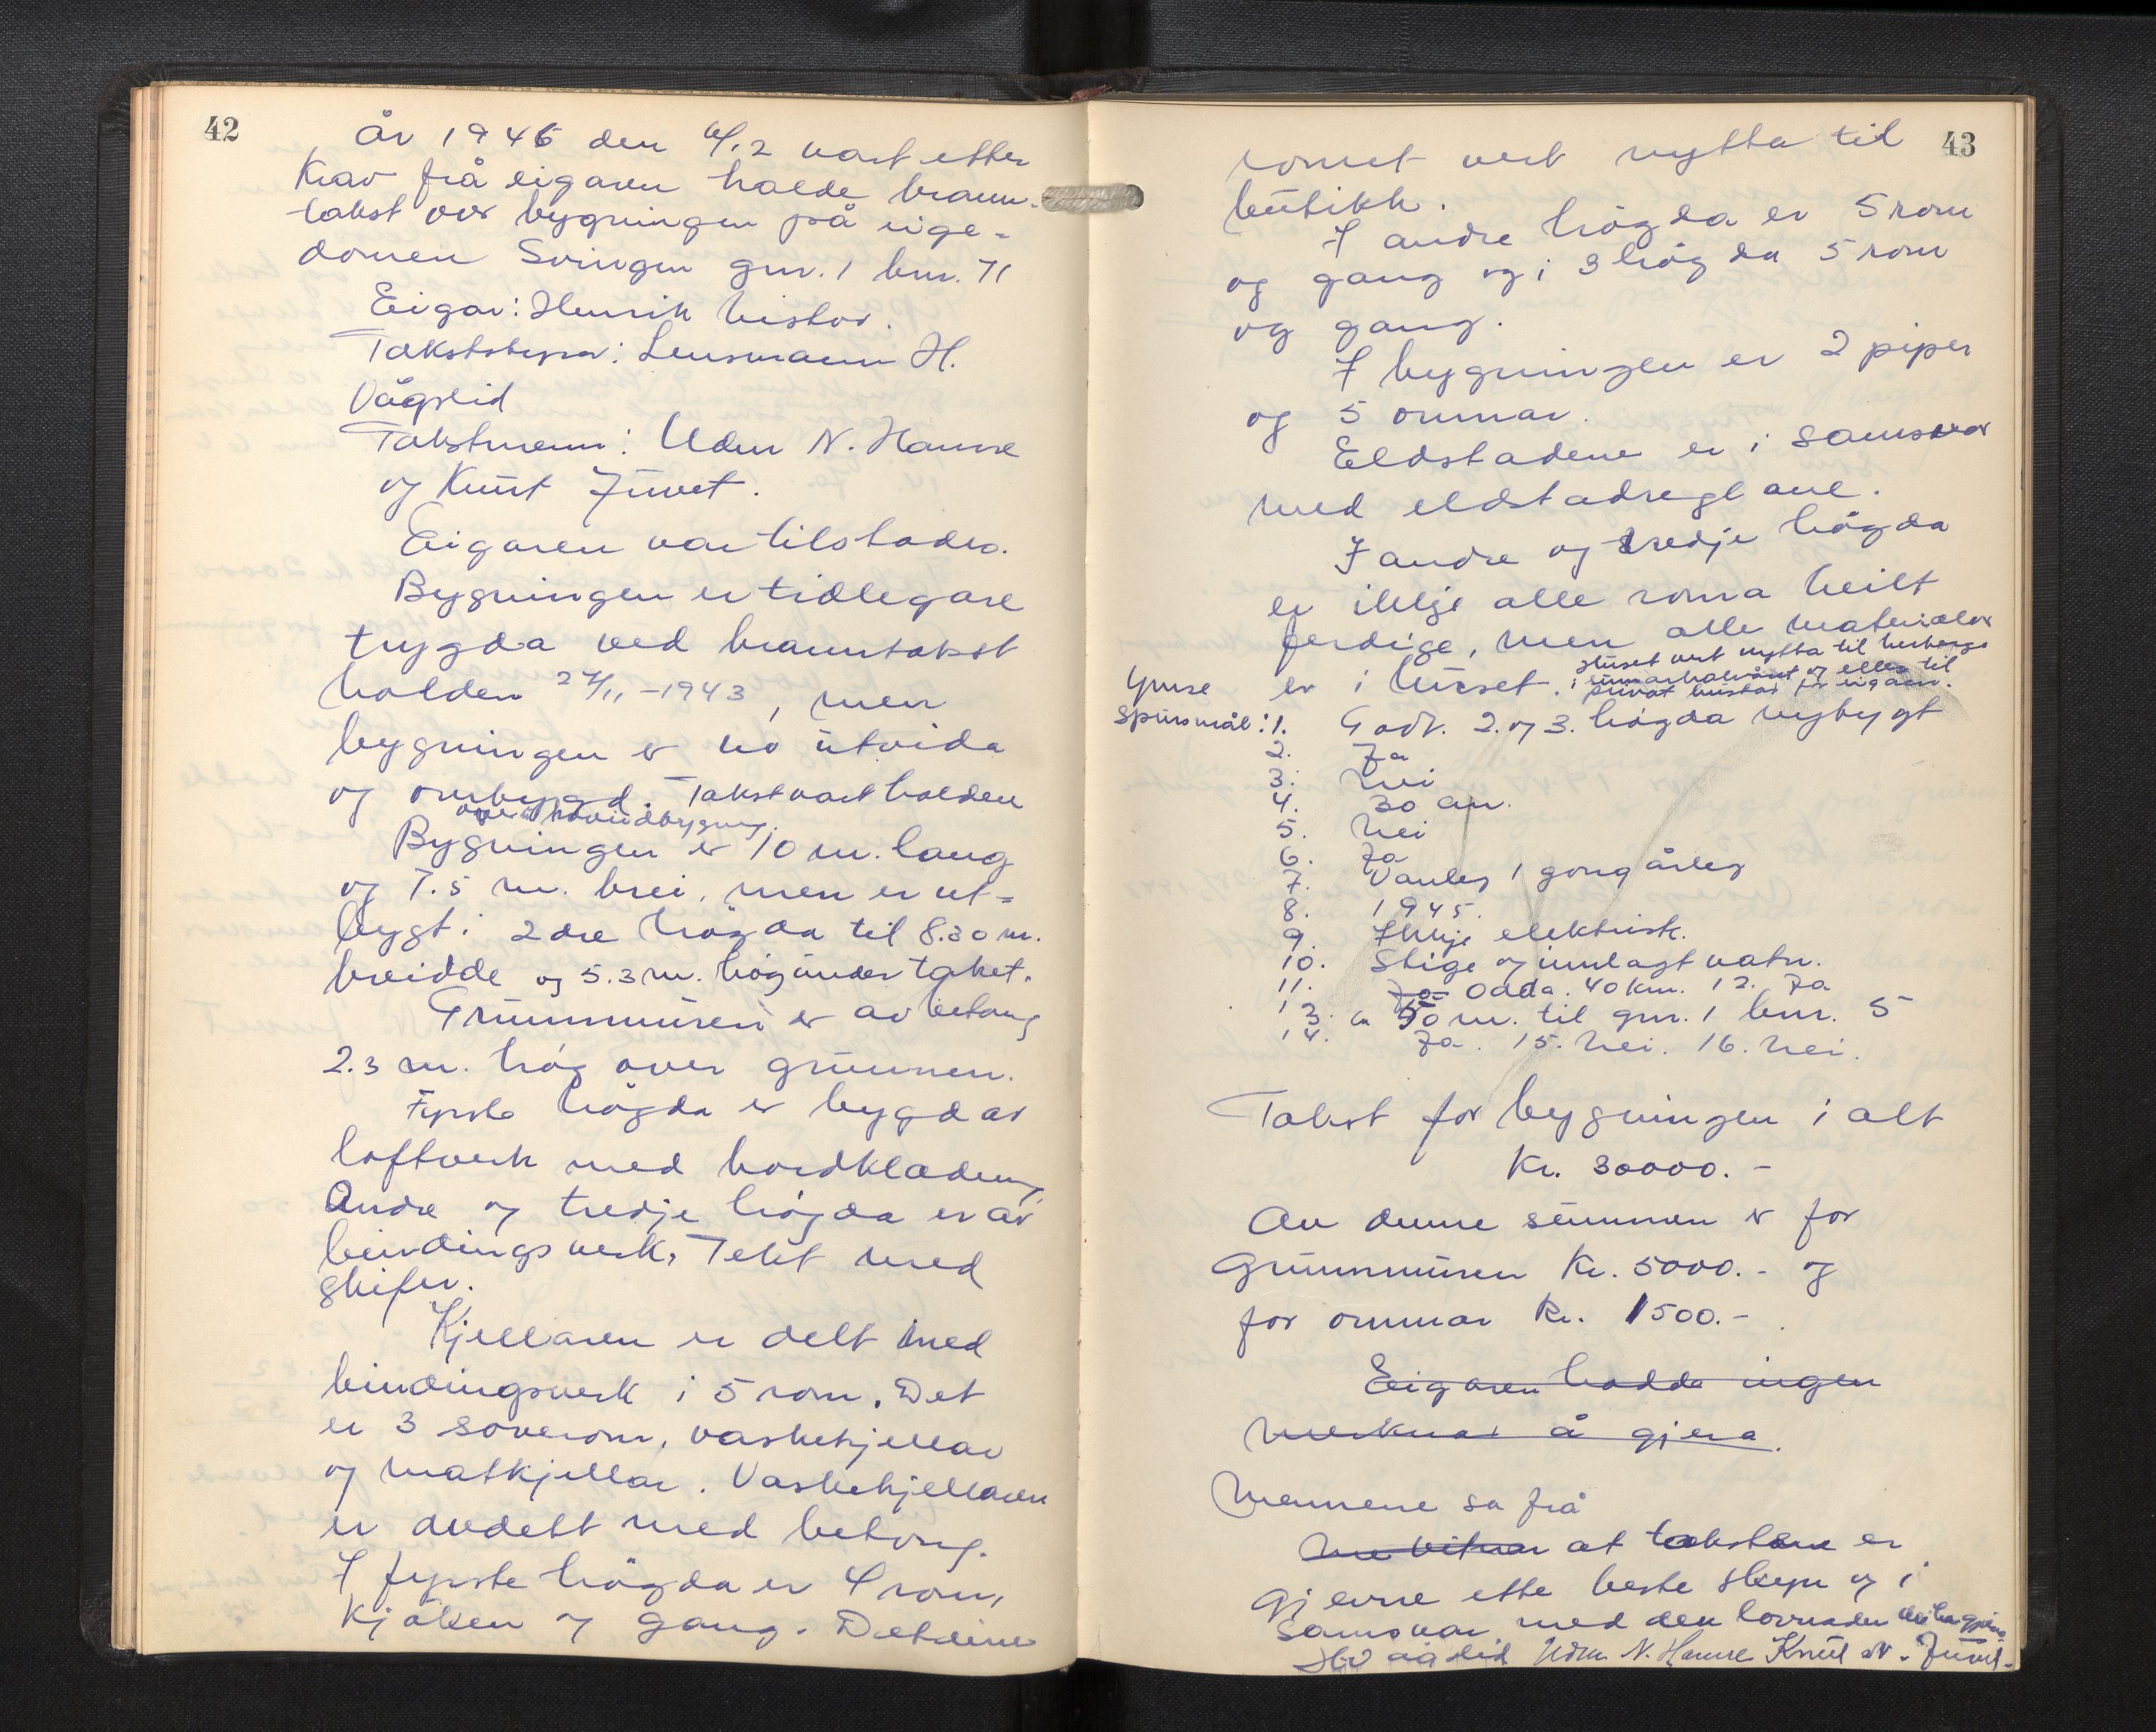 42
År 1946 den 6/12 vart etter
krav frå eigaren halde brann-
takst over bygningen på eige-
domen Svingen gnr. 1 bnr. 71
Eigar: Henrik
Takststyrar: Lensmann H.
Vågslid
Takstmenn: Udm N. Hamre
og Knut Juvet.
Eigaren var tilstades.
Bygningen er tidlegare
trygda ved branntakst
halden 27/11-1943, men
bygningen er no utvida
og ombygd. Takst vart halden
over hovudbygning.
Bygningen er 10 m. lang
og 7.5 m. brei, men er ut-
bygt i 2dre högda til 8.30 m.
breidde og 5.3 m. hög under taket.
Grunnmuren er av betong
2.3 m. hög over grunnen.
Fyrste högda er bygd av
loftverk med bordklædning
Andre og tredje högda er av
bindingsverk. Tekt med
skifer.
Kjellaren er delt med
bindingsverk i 5 rom. Det
er 3 soverom, vaskekjellar
og matkjellar. Vaskekjellaren
er avdelt med betong.
I fyrste högda er 4 rom,
kjöken og gang. Det eine
43
romet vert nytta til
butikk.
I andre högda er 5 rom
og gang og i 3 högda 5 rom
og gang.
I bygningen er 2 piper
og 5 omnar.
Eldstadene er i samsvar
med eldstadreglane.
I andre og tredje högda
er ikkje alle roma heilt
ferdige, men alle materialer
er i huset. Huset vert nytta til herberge
i sumarhalvåret og elles til
privat bustad for eigaren.
Ymse
spursmål: 1. Godt. 2. og 3. högda nybygt
2. Ja
3. Nei
4. 30 cm.
5. Nei
6. Ja
7. Vanleg 1 gong årleg
8. 1945.
9. Ikkje elektrisk.
10. Stige og innlagt vatn.
11. Ja Odda. 40 km. 12. Ja
13. ca 50 m. til gnr. 1 bnr. 5
14. Ja. 15. Nei. 16. Nei.
Takst for bygningen i alt
Kr. 30000.-
Av denne summen er for
Grunnmuren Kr. 5000.- og
for omnar Kr. 1500.-
Eigaren hadde ingen
merknad å gjera.
Mennene sa frå
Me vitnar at takstene er
gjevne ette beste skjyn og i
samsvar med den lovnaden dei har gjeve.
H Vågslid Udm N. Hamre Knut N. Juvet.